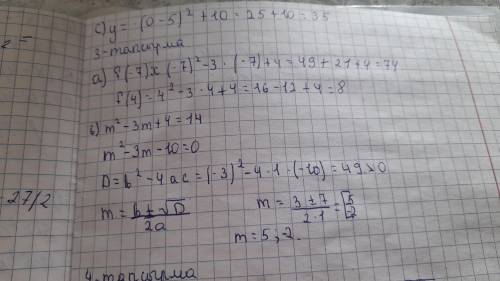 c) y = (0-5)² + 10 = 25 + 10 = 35
3-тапсырма
a) f(-7) x (-7)² - 3 · (-7) + 4 = 49 + 21 + 4 = 74
f(4) = 4² - 3 · 4 + 4 = 16 - 12 + 4 = 8
в) m² - 3m + 4 = 14
m² - 3m - 10 = 0
D = b² - 4ac = (-3)² - 4 · 1 · (-10) = 49 > 0
27/2
m = b ± √D / 2a m = 3 ± 7 / 2 · 1 = [5 -2
m = 5 ; -2.
4-тапсырма